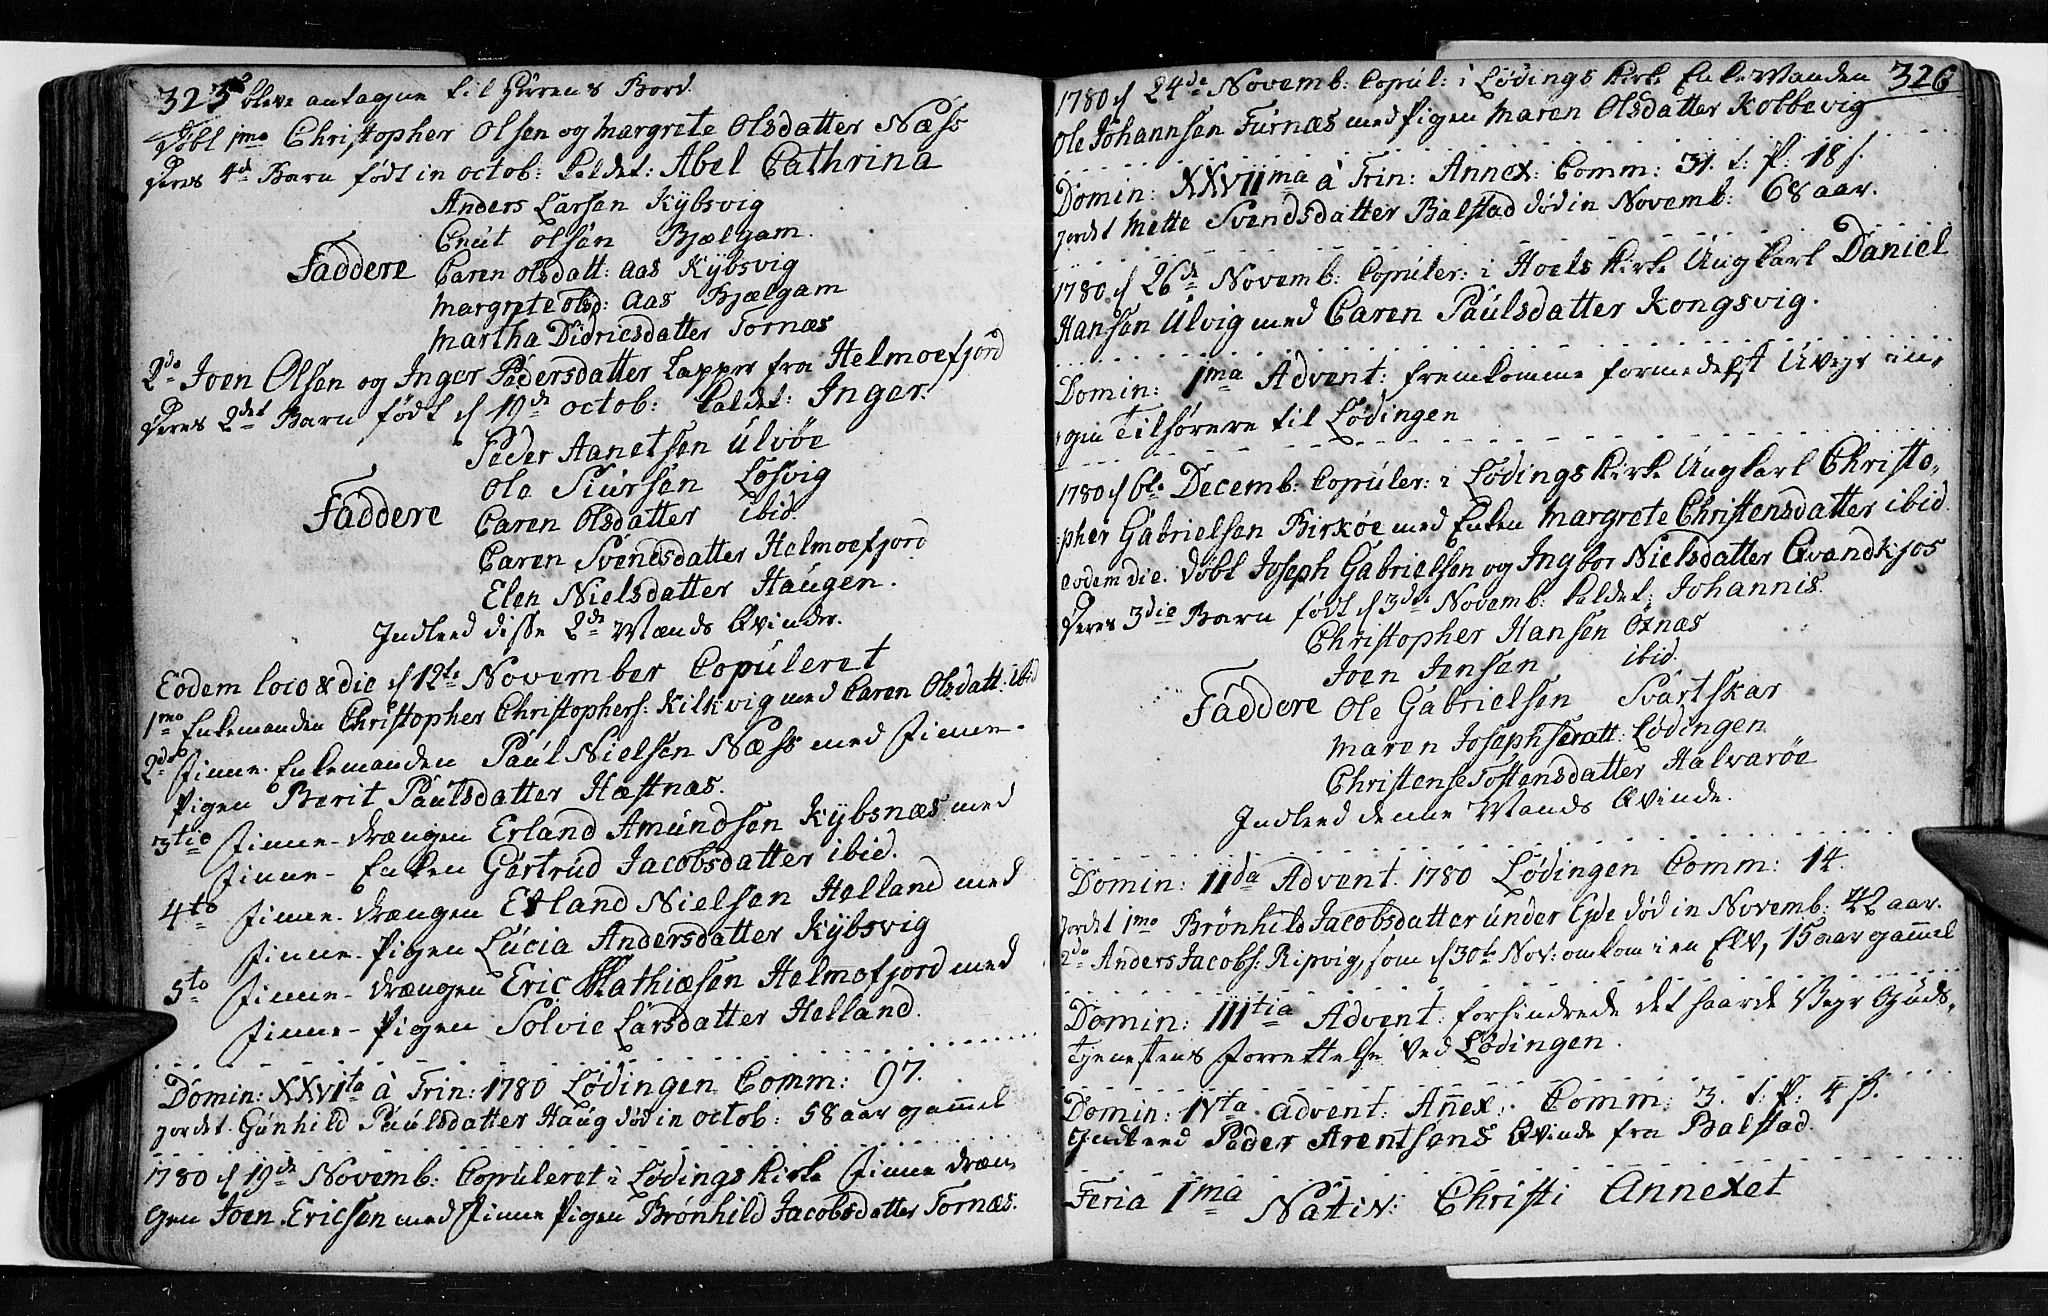 325
bleve antagne til Herrens Bord.
Døbt 1mo Christopher Olsen og Margrete Olsdatter Næss
Deres 4de Barn født in octob: kaldet: Abel Cathrina
Anders Larsen Kÿbsvig
Cnut olsen Bjælgam.
Faddere Caren olsdatt: Aas Kÿbsvig
Margrete olsd: Aas Bjælgam
Martha Didricsdatter Tornæs
2do Joen Olsen og Inger Pedersdatter Lapper fra Helmoefjord
Deres 2det Barn født d 19de octob: kaldet: Inger.
Peder Aanetsen Ulvøe
Ole Siursen Løsvig
Faddere Caren Olsdatter ibid.
Caren Svendsdatter Helmoefjord
Elen Nielsdatter Haugen.
Indleed disse 2de Mænds Qvinder.
Eodem loco & die d 12te November Copuleret
1mo Enkemanden Christopher Christophers: Kilkvig med Caren Olsdatt: ibid
2do Finne-Enkemanden Paul Nielsen Næss med Finne-
Pigen Berit Paulsdatter Hæstnæs.
3tio Finne-Drængen Erland Amundsen Kÿbsnæs med
Finne-Enken Gertrud Jacobsdatter ibid.
4to Finne-Drængen Erland Nielsen Helland med
Finne-Pigen Lucia Andersdatter Kÿbsvig
5to Finne-Drængen Eric Mathiæsen Helmofjord med
Finne-Pigen Solvie Larsdatter Helland.
Domin: XXVIta à Trin: 1780 Lødingen Comm: 97.
Jordet Gunhild Paulsdatter Haug død in octob: 58 aar gammel
1780 d 19de Novemb: Copuleret i Lødings Kirke Finne Dræn-
gen Joen Ericsen med Finne Pigen Brønhild Jacobsdatter Tornæs.
326
1780 d 24de Novemb: Copul: i Lødings Kirke Enkemanden
Ole Johannsen Furnæs med Pigen Maren Olsdatter Kobbevig
Domin: XXVIIma à Trin: Annex: Comm: 31. t: P: 18 s.
Jordet Mette Svendsdatter Balstad død in Novemb: 68 aar.
1780 d 26de Novemb: Copuler: i Hoels Kirke Ungkarl Daniel
Hansen Ulvig med Caren Paulsdatter Kongsvig.
Domin: 1ma Advent: fremkomme formedelst Uveyr in-
gen Tilhørere til Lødingen
1780 d 6te Decemb: Copuler: i Lødings Kirke Ungkarl Christo-
pher Gabrielsen Birkøe med Enken Margrete Christensdatter ibid.
eodem die. Døbt Joseph Gabrielsen og Ingbor Nielsdatter Qvandkjos
Deres 3die Barn født d 3de Novemb: kaldet: Johannis.
Christopher Hansen Oxnæs
Joen Jensen ibid.
Faddere Ole Gabrielsen Svartskar
Maren Josephsdatt: Lødingen
Christense Tostensdatter Halvarøe
Indleed denne Mands Qvinde.
Domin: IIda Advent. 1780 Lødingen Comm: 14.
Jordet 1mo Brønhild Jacobsdatter under Eyde død in Novemb: 42 aar.
2do Anders Jacobs: Ripvig, som d 30te Nov: omkom i en Elv, 15 aar gammel
Domin: IIItia Advent: forhindrede det haarde Veyr Guds-
Tjenestens Forrettelse ved Lødingen.
Domin: IVta Advent: Annex: Comm: 3. t: P: 4 s.
Indleed Peder Arentsens Qvinde fra Balstad.
Feria 1ma Nativ: Christi Annexet